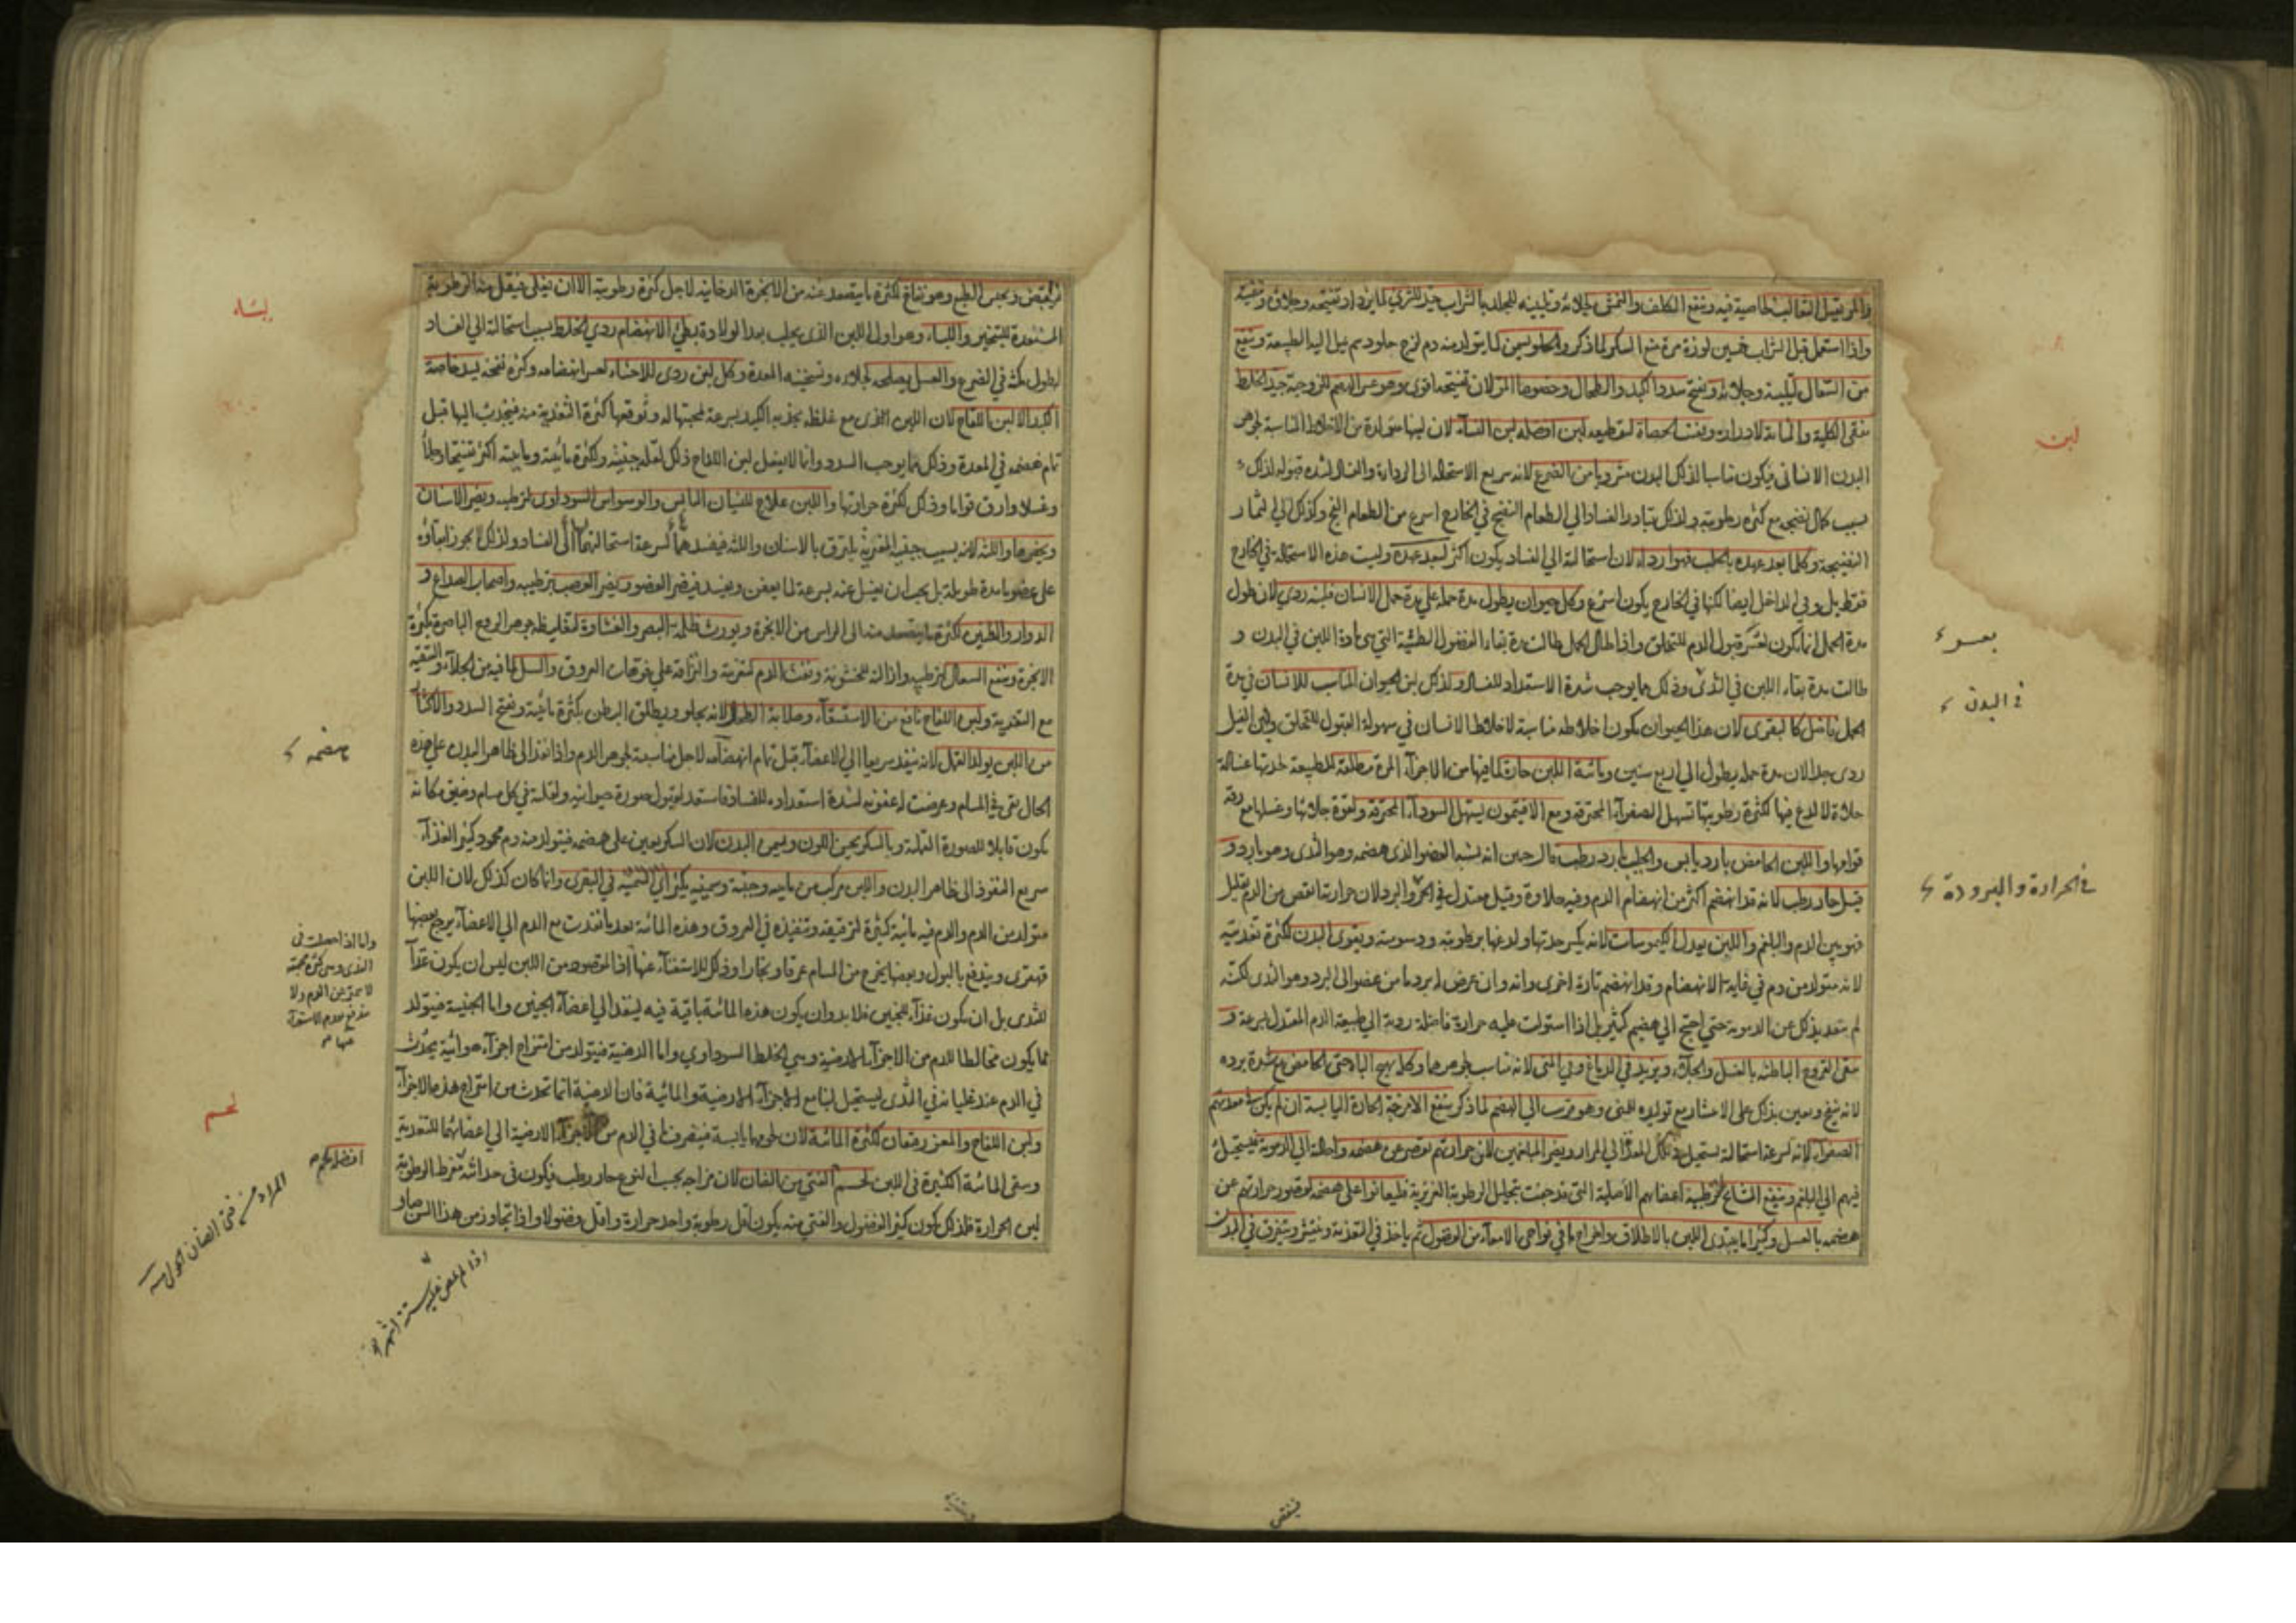 والمر يقتل الثعالب لخاصية فيه وينفع الكلف والنمش لجلائه وتليينه للجلد بالشراب جيد للشرى لما يزداد تفتيحه وجلاؤه وتنقيته
واذا استعمل قبل الشراب خمسين لوزة مرة منع السكر لما ذكر والحلو يسمن لما يتولد منه دم لزج حلو دسم يميل اليه الطبيعة وينفع
من السعال لتليينه وجلائه ويفتح سدد الكبد والطحال وخصوصا المر لان تفتيحه اقوى وهو عسر الهضم للزوجته جيد الخلط
ينقى الكلية والمثانة لادراره ويفتت الحصاة لتقطيعه لبن افضله لبن النساء لان لبنها متولدة من الاخلاط المناسبة لجوهر
البدن الانسانى فيكون مناسبا لذلك البدن مشروبا من الضرع لانه سريع الاستحالة الى الرداءة والفساد لشدة قبوله لذلك
بسبب كمال نضجه مع كثرة رطوبته ولذلك يتبادر الفساد الي الطعام النضيج في الخارج اسرع من الطعام الفج وكذلك الي الثمار
النضيجة وكلما بعد عهده بالحلب فهو اردا لان استحالته الي الفساد يكون اكثر لبعد عهده وليست هذه الاستحالة في الخارج
فقط بل وفي الداخل ايضا لكنها في الخارج يكون اسرع وكل حيوان يطول مدة حمله علي مدة حمل الانسان فلبنه ردى لان طول
مدة الحمل انما يكون لعسر قبول الدم للتخلق واذا طال الحمل طالت مدة بقاء الفضول الطمثية التي هى مادة اللبن في البدن و
طالت مدة بقاء اللبن في الثدى وذلك مما يوجب شدة الاستعداد للفساد ولذلك لبن الحيوان المناسب للانسان في مدة
الحمل فاضل كالبقرى لان هذا الحيوان يكون اخلاطه مناسبة لاخلاط الانسان في سهولة القبول للتخلق ولبن الفيل
ردى جدا لان مدة حمله يطول الي اربع سنين ومائية اللبن حارة لما فيها من الاجزاء المرة مطلقة للطبيعة لحدتها غسالة
جلاءة لا لدع فيها لكثرة رطوبتها تسهل الصفراء المحترقة ومع الافتيمون يسهل السوداء المحترقة ولقوة جلائها وغسلها مع رقة
قوامها واللبن الحامض بارد يابس والحليب بارد رطب قال حنين انه يشبه العضو الذى هضمه وهو الثدى وهو بارد و
قيل حار رطب لانه قد انهضم اكثر من انهضام الدم وفيه حلاوة وقيل معتدل في الحر والبرد لان حرارته انقص من الدم بقليل
فهو بين الدم والبلغم واللبن يعدل الكيموسات لانه يكسر حدتها ولدغها برطوبته ودسومته ويقوى البدن لكثرة تغذيته
لانه متولد من دم في غاية الانهضام وقد انهضم تارة اخرى وانه وان عرض له برد ما من عضو الى البرد وهو الثدى لكنه
لم يتعد بذلك عن الدموية حتى احتج الي هضم كثير بل اذا استولت عليه حرارة فاضلة ردته الي طبيعة الدم المعتدل بسرعة و
ينقى القروح الباطنة بالغسل والجلاء ويزيد في الدماغ وفي المنى لانه مناسب لجوهرها وكله يهيج الباه حتى الحامض مع شدة برده
لانه ينفخ ويعين بذلك على الانتشار مع توليده للمنى وهو قريب الي الهضم لما ذكر ينفع الامزجة الحارة اليابسة ان لم يكن في معدتهم
الصفراء لانه لسرعة استحالته يستحيل في تلك المعد الي المرار ويضر المبلغمين لان حرارتهم تقصر عن هضمه واحالته الي الدموية فيستحيل
فيهم الي البلغم وينفع المشايخ لترطيبه اعضائهم الاصلية التى قد جفت بتحليل الرطوبة الغريزية فليعانوا على هضمه لقصور حرارتهم عن
هضمه بالعسل وكثيرا ما يبتدى اللبن بالاطلاق واخراج ما في نواحى الامعاء من الفضول ثم ياخذ في التغذية وينتشر ويتفرق في البدن
لبن
في البدن
في الحرارة والبرودة
فينقص
فينقص ويحبس الطبع وهو نفاخ لكثرة ما يتصعد عنه من الابخرة الدخانية لاجل كثرة رطوبته الا ان يغلى فيقل منه الرطوبة
المستعدة للتبخير واللباء وهو اول اللبن الذى يحلب بعد الولادة بطئ الانهضام ردي الخلط بسبب استحالته الي الفساد
لطول مكثه في الضرع والعسل يصلحه لجلائه وتسخينه المعدة وكل لبن ردى للاحشاء لعسر انهضامه وكثرة نفخه يسد خاصة
الكبد الا لبن اللقاح لان اللبن القوى مع غلظه يجذبه الكبد بسرعة لمحبتها له وتوقعها كثرة التغذية منه فينجذب اليها قبل
تمام هضمه في المعدة وذلك مما يوجب السدد وانما لا يفعل لبن اللقاح ذلك لقلة جبنيته ولكثرة مائيته ومائيته اكثر تفتيحا وجلاء
وغسلا وارق قواما وذلك لكثرة حرارتها واللبن علاج للنسيان اليابس والوسواس السوداوى لترطيبه ويضر الاسنان
ويحفرها واللثة لانه بسبب جبنيته المغرية يلتزق بالاسنان واللثة فيفسدهما لسرعة استحالتها الى الفساد ولذلك لا يجوز ابقاؤه
على عضو ما مدة طويلة بل يجب ان يغسل عنه بسرعة لما يعفن ويفسد فيضر العضو ويضر العصب بترطيبه واصحاب الصداع و
الدوار والطنين لكثرة ما يتصعد منه الى الراس من الابخرة ويورث ظلمة البصر والغشاوة لتغليظه جوهر الروح الباصرة بكثرة
الابخرة وينفع السعال لترطيبه وازالته للخشونة ونفث الدم لتغريته والتزاقه علي فوهات العروق والسل لما فيه من الجلاء والتنقية
مع التغذية ولبن اللقاح نافع من الاستسقاء وصلابة الطحال لانه يجلو ويطلق البطن بكثرة مائيته ويفتح السدد والاكثار
من اللبن يولد القمل لانه ينفذ سريعا الي الاعضاء قبل تمام انهضامه لاجل مناسبته لجوهر الدم واذا نفذ الى ظاهر البدن علي هذه
الحال بقى في المسام وعرضت له عفونة لشدة استعداده للفساد فاستعد لقبول صورة حيوانية ولقلته في كل مسام وضيق مكانه
يكون قابلا للصورة القملية وبالسكر يحسن اللون ويسمن البدن لان السكر يعين على هضمه فيتولد منه دم محمود كثير الغذاء
سريع النفوذ الى ظاهر البدن واللبن مركب من مائية وجبنية وسمنية يكثر السمنية في البقرى وانما كان كذلك لان اللبن
متولد من الدم والدم فيه مائية كثيرة لترقيقه وتنفيذه في العروق وهذه المائية بعد ما نفذت مع الدم الي الاعضاء يرجع بعضها
قهقرى ويندفع بالبول وبعضها يخرج من المسام عرقا وبخارا وذلك للاستغناء عنها اذ المقصود من اللبن ليس ان يكون غذاء
للثدى بل ان يكون غذاء للجنين فلا بد وان يكون هذه المائية باقية فيه لينفذ الي اعضاء الجنين واما الجبنية فيتولد
مما يكون مخالطا للدم من الاجزاء الارضية وهى الخلط السوداوى واما الدهنية فيتولد من امتزاج اجزاء هوائية يحدث
في الدم عند غليانه في الثدى ليستحيل لبنا مع الاجزاء الارضية والمائية فان الدهنية انما تحدث من امتزاج هذه الاجزاء
ولبن اللقاح والمعز رقيقان لكثرة المائية لان لحومها يابسة فينصرف ما في الدم من الاجزاء الارضية الي اعضائها للتغذية
وبقى المائية الكثيرة فى اللبن لحم الفتى من الضان لان مزاجه بحسب النوع حار رطب فيكون في حداثته مفرط الرطوبة
لين الحرارة فلذلك يكون كثير الفضول والفتى منه يكون اقل رطوبة واحد حرارة واقل فضولا واذا تجاوز من هذا السن صار
لباء
هضمه
واما اذا حصلت فى
الثدى
لحم
افضله لحم
المراد من فتى الضان الحولى منه
اذا لم يمض عليه ستة اشهر